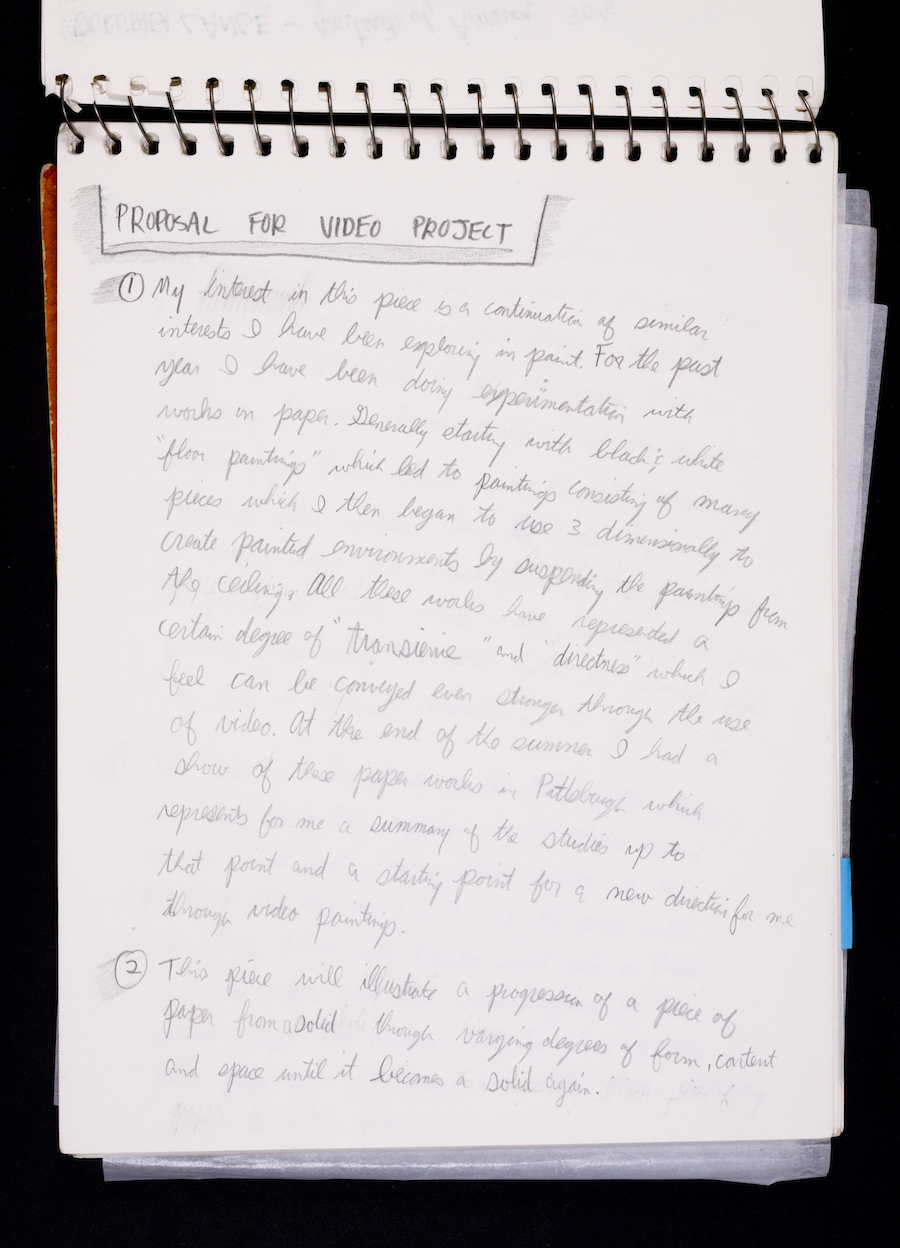 DOROTHEA LANGE –
PROPOSAL FOR VIDEO PROJECT
① My interest in this piece is a continuation of similar
interests I have been exploring in paint. For the past
year I have been doing experimentation with
works on paper. Generally starting with black & white
"floor paintings" which led to paintings consisting of many
pieces which I then began to use 3 dimensionally to
create painted environments by suspending the paintings from
the ceiling. All these works have represented a
certain degree of "transience" and "directness" which I
feel can be conveyed even stronger through the use
of video. At the end of the summer I had a
show of these paper works in Pittsburgh which
represents for me a summary of the studies up to
that point and a starting point for a new direction for me
through video paintings.
② This piece will illustrate a progression of a piece of
paper from a solid through varying degrees of form, content
and space until it becomes a solid again.